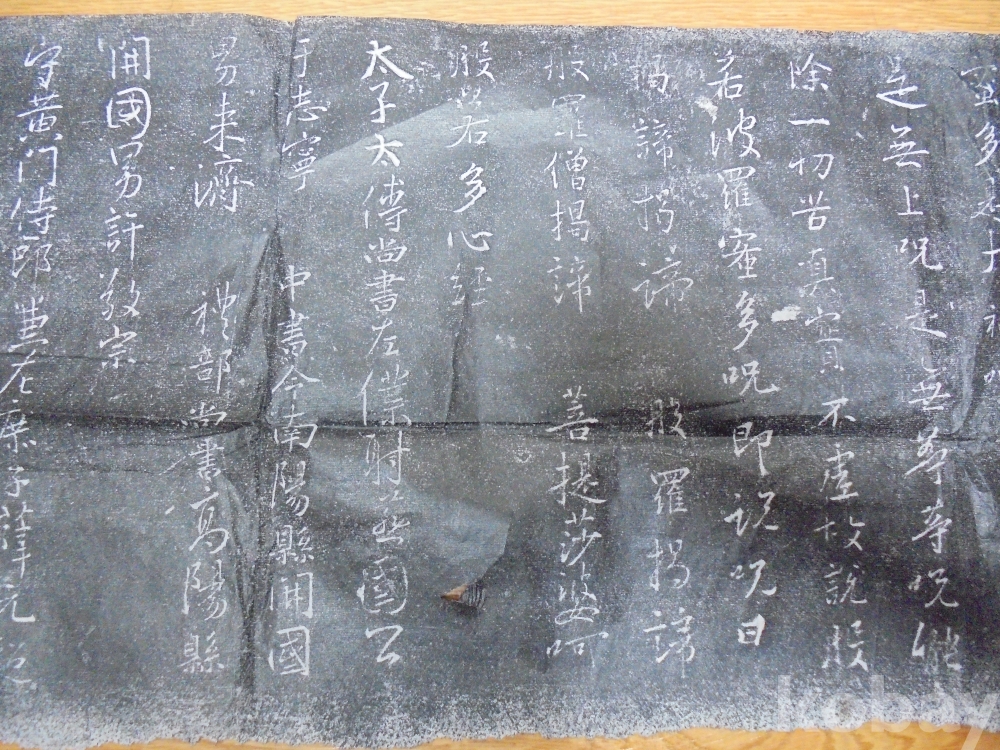 蜜多是大神咒
是無上咒是無等等咒能
除一切苦真實不虛故說般
若波羅蜜多咒即說咒曰
揭諦揭諦 般羅揭諦
般羅僧揭諦 菩提莎婆呵
般若多心經
太子太傅尚書左僕射燕國公
于志寧 中書令南陽縣開國
男來濟 禮部尚書高陽縣
開國男許敬宗
守黃門侍郎兼左庶子薛元超
kobay